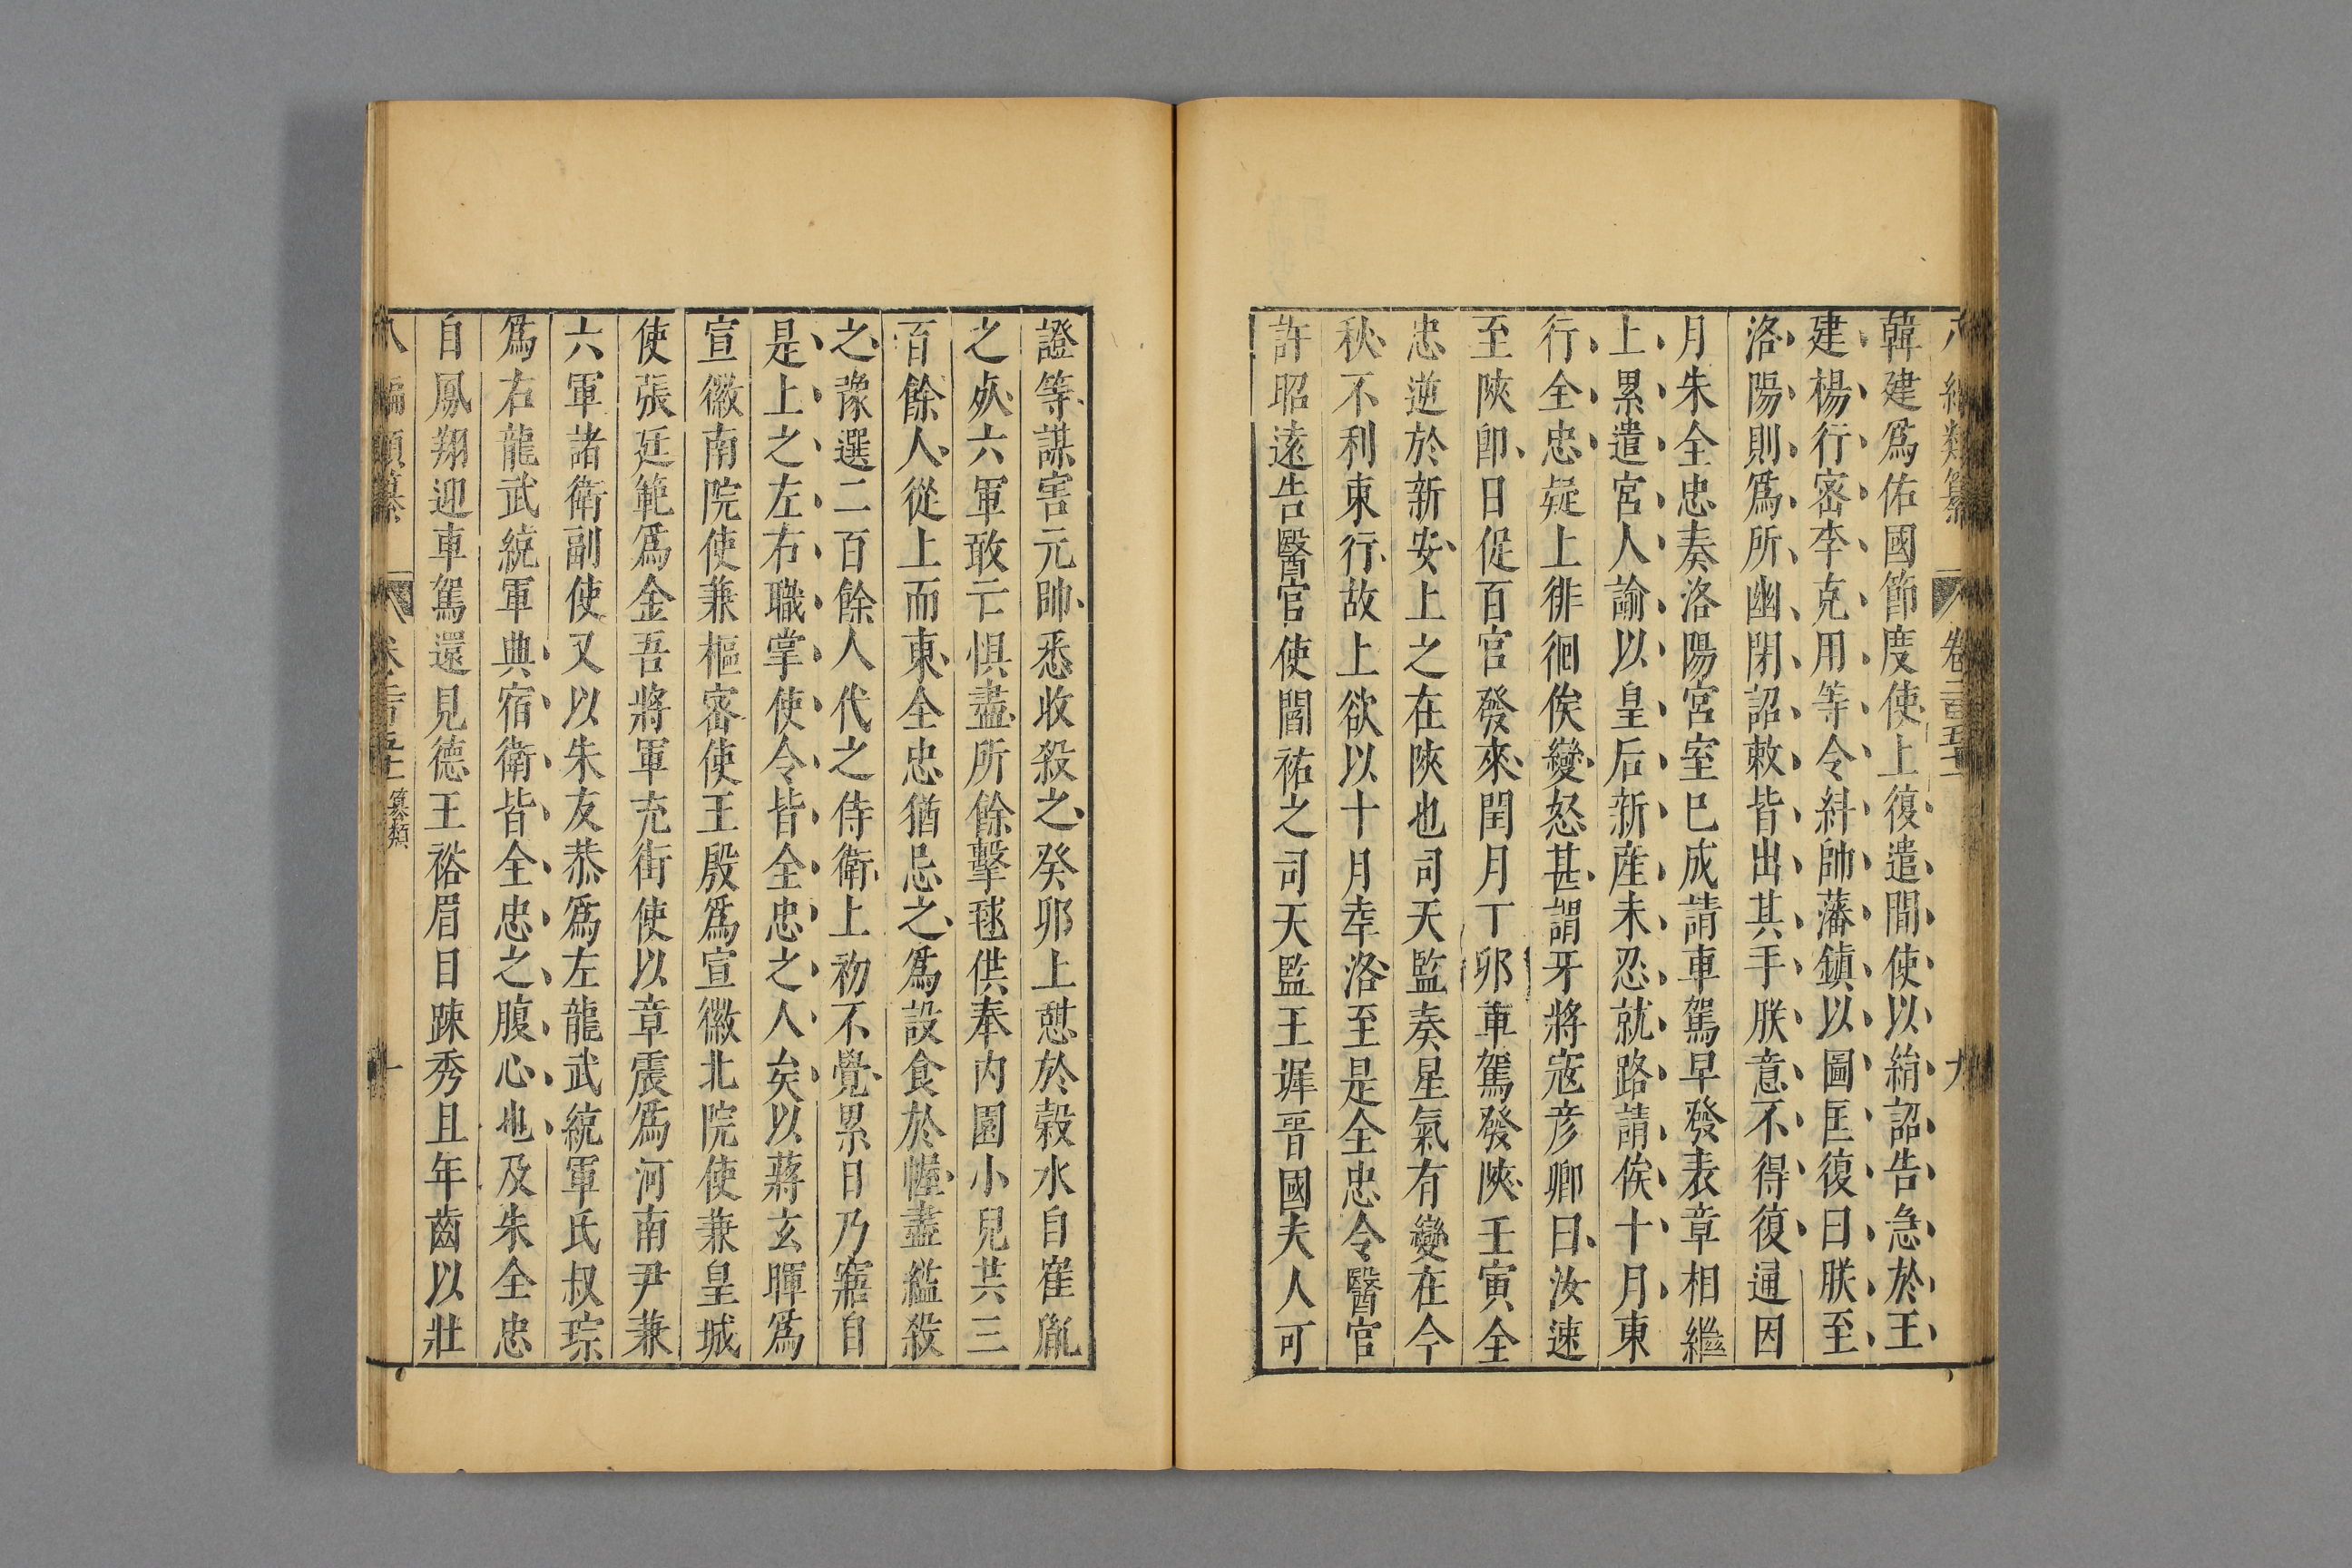 八編類纂 卷二百五十二 九
韓建爲佑國節度使上復遣間使以絹詔告急於王
建楊行密李克用等令糾帥藩鎮以圖匡復曰朕至
洛陽則爲所幽閉詔敕皆出其手朕意不得復通因
月朱全忠奏洛陽宮室已成請車駕早發表章相繼
上累遣宮人諭以皇后新産未忍就路請俟十月東
行全忠疑上徘徊俟變怒甚謂牙將寇彦卿曰汝速
至陝卽日促百官發來閏月丁卯車駕發陝壬寅全
忠逆於新安上之在陝也司天監奏星氣有變在今
秋不利東行故上欲以十月幸洛至是全忠令醫官
許昭遠告醫官使閻祐之司天監王墀晉國夫人可
證等謀害元帥悉收殺之癸卯上憇於穀水自崔胤
之死六軍散亡俱盡所餘擊毬供奉内園小兒共三
百餘人從上而東全忠猶忌之爲設食於幄盡縊殺
之豫選二百餘人代之侍衛上初不覺累日乃寤自
是上之左右職掌使令皆全忠之人矣以蔣玄暉爲
宣徽南院使兼樞密使王殷爲宣徽北院使兼皇城
使張廷範爲金吾將軍充街使以章震爲河南尹兼
六軍諸衛副使又以朱友恭爲左龍武統軍氏叔琮
爲右龍武統軍典宿衛皆全忠之腹心也及朱全忠
自鳳翔迎車駕還見德王裕眉目踈秀且年齒以壯
八編類纂 卷二百五十二 篡類 十